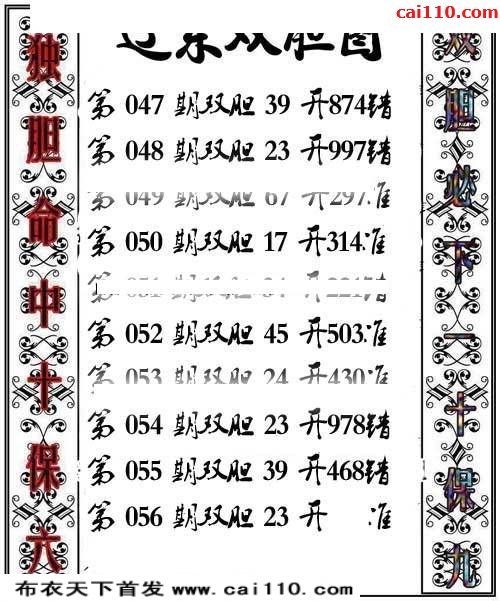 cai110.com
辽东双胆图
独胆命中十保六
第 047 期双胆 39 开874错
第 048 期双胆 23 开997错
第 049 期双胆 67 开297准
第 050 期双胆 17 开314准
第 052 期双胆 45 开503准
第 053 期双胆 24 开430准
第 054 期双胆 23 开978错
第 055 期双胆 39 开468错
第 056 期双胆 23 开 准
双胆必下一十保九
布衣天下首发 www.cai110.com